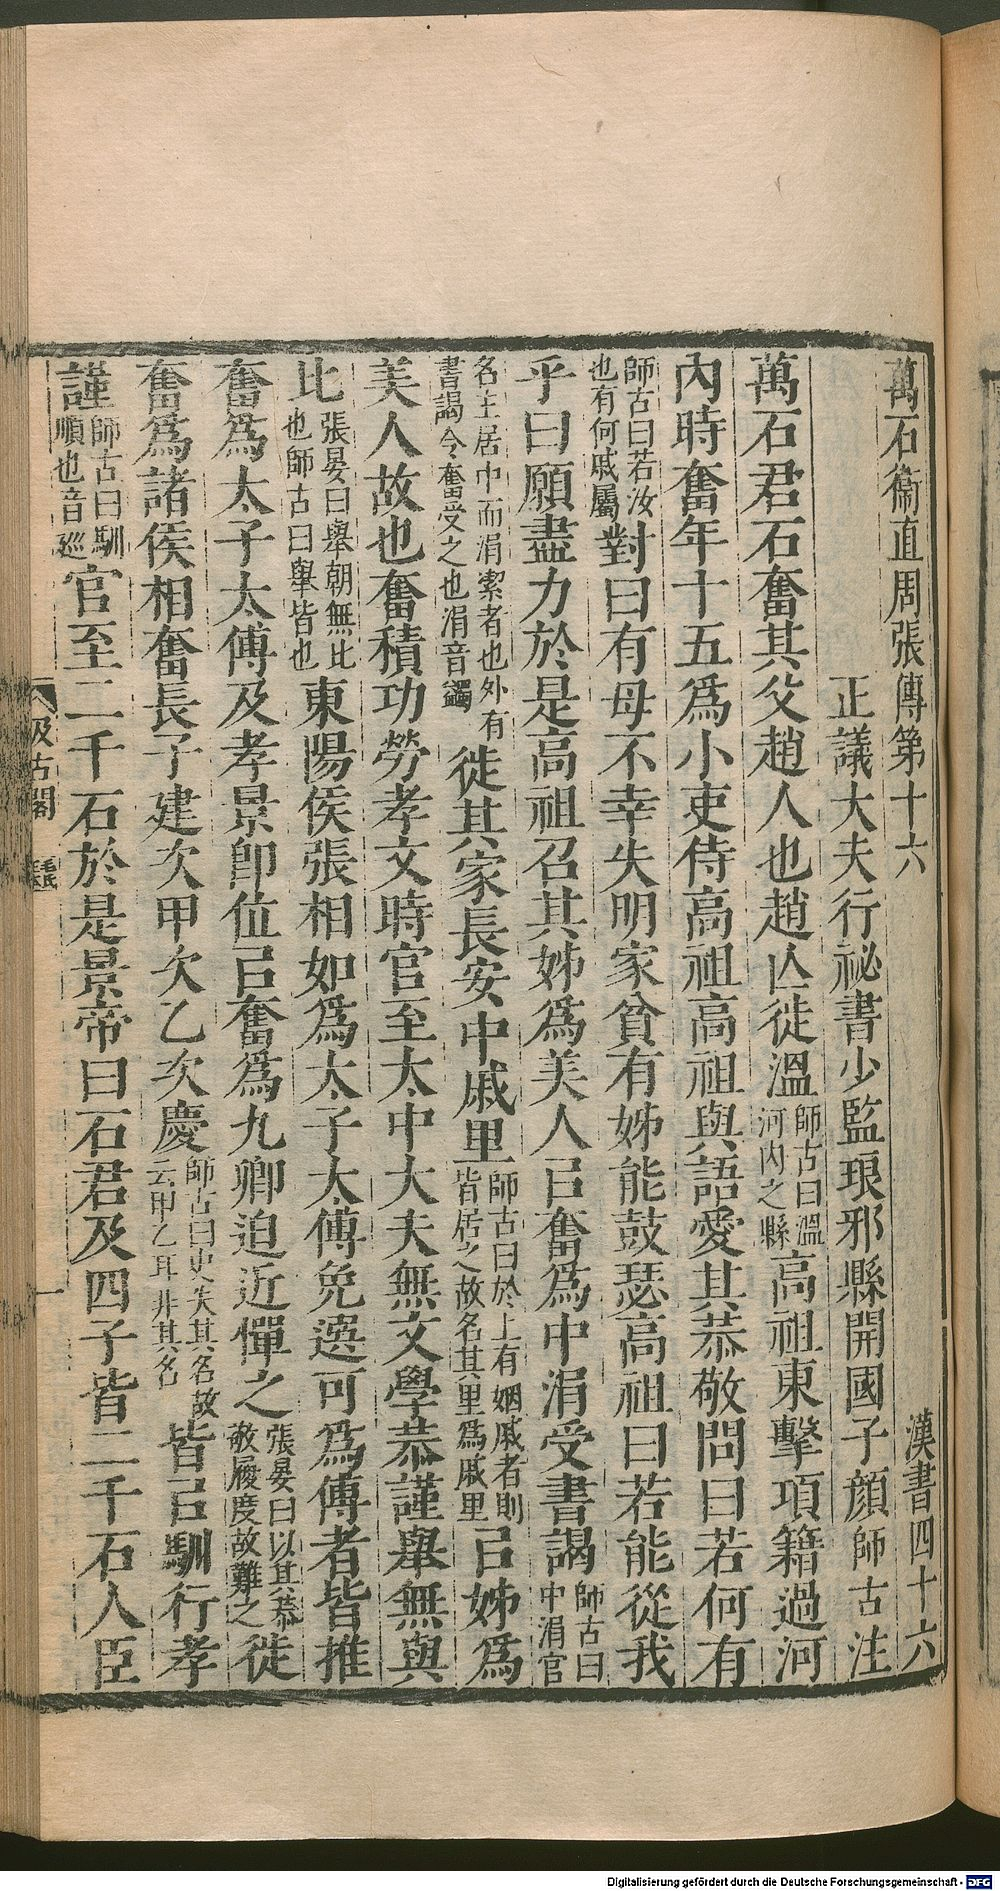 萬石衞直周張傳第十六　漢書四十六
正議大夫行祕書少監琅邪縣開國子顏師古注
萬石君石奮其父趙人也趙亾徙溫師古曰溫河內之縣高祖東擊項籍過河
內時奮年十五爲小吏侍高祖高祖與語愛其恭敬問曰若何有
師古曰若汝也有何戚屬對曰有母不幸失明家貧有姊能鼓瑟高祖曰若能從我
乎曰願盡力於是高祖召其姊爲美人㠯奮爲中涓受書謁師古曰中涓官
名主居中而涓潔者也外有書謁令奮受之也涓音蠲徙其家長安中戚里師古曰於上有姻戚者則皆居之故名其里爲戚里㠯姊爲
美人故也奮積功勞孝文時官至太中大夫無文學恭謹舉無與
比張晏曰舉朝無比也師古曰舉皆也東陽侯張相如爲太子太傅免選可爲傅者皆推
奮爲太子太傅及孝景卽位㠯奮爲九卿迫近憚之張晏曰以其恭敬履度故難之徙
奮爲諸侯相奮長子建次甲次乙次慶師古曰史失其名故云甲乙耳非其名皆㠯馴行孝
謹師古曰馴順也音巡官至二千石於是景帝曰石君及四子皆二千石人臣
汲古閣
毛氏
一
Digitalisierung gefördert durch die Deutsche Forschungsgemeinschaft - DFG